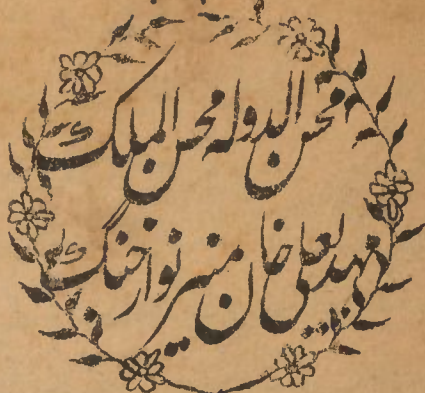 محسن الدوله محسن الملک
مهدیعلی خان منیر نواز جنگ